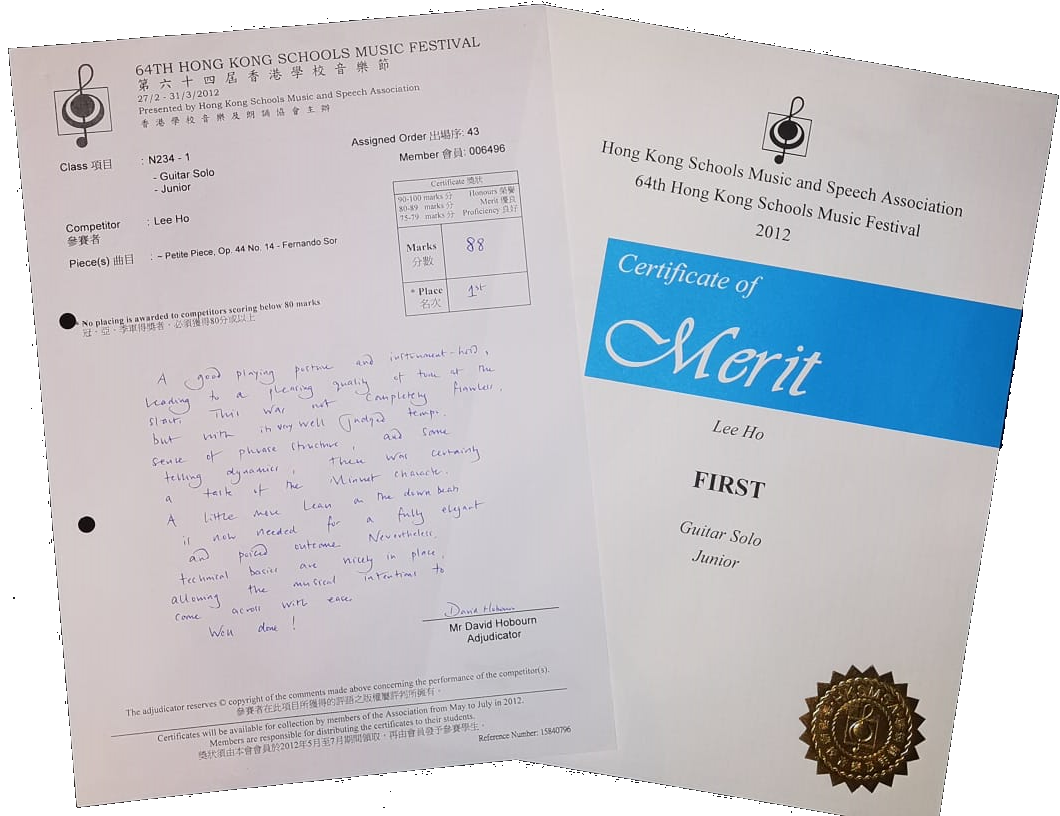 64TH HONG KONG SCHOOLS MUSIC FESTIVAL
第六十四屆香港學校音樂節
27/2 - 31/3/2012
Presented by Hong Kong Schools Music and Speech Association
香港學校音樂及朗誦協會主辦
Assigned Order 出場序: 43
Member 會員: 006496
Class 項目 : N234 - 1
- Guitar Solo
- Junior
Competitor : Lee Ho
參賽者
Piece(s) 曲目 : ~ Petite Piece, Op. 44 No. 14 - Fernando Sor
Certificate 獎狀
90-100 marks 分 Honours 榮譽
80-89 marks 分 Merit 優良
75-79 marks 分 Proficiency 良好
Marks 88
分數
* Place 1st
名次
* No placing is awarded to competitors scoring below 80 marks
冠、亞、季軍得獎者，必須獲得80分或以上
A good playing posture and instrument-hold,
leading to a pleasing quality of tone at the
start. This was not completely flawless,
but with its very well judged tempo,
sense of phrase structure, and some
telling dynamics, there was certainly
a taste of the Minuet character.
A little more lean on the down beats
is now needed for a fully elegant
and poised outcome. Nevertheless,
technical basics are nicely in place,
allowing the musical intentions to
come across with ease.
Well done!
David Hobourn
Mr David Hobourn
Adjudicator
The adjudicator reserves © copyright of the comments made above concerning the performance of the competitor(s).
參賽者在此項目所獲得的評語之版權屬評判所擁有。
Certificates will be available for collection by members of the Association from May to July in 2012.
Members are responsible for distributing the certificates to their students.
獎狀須由本會會員於2012年5月至7月期間領取，再由會員發予參賽學生。
Reference Number: 15840796
Hong Kong Schools Music and Speech Association
64th Hong Kong Schools Music Festival
2012
Certificate of
Merit
Lee Ho
FIRST
Guitar Solo
Junior
HKSMSA